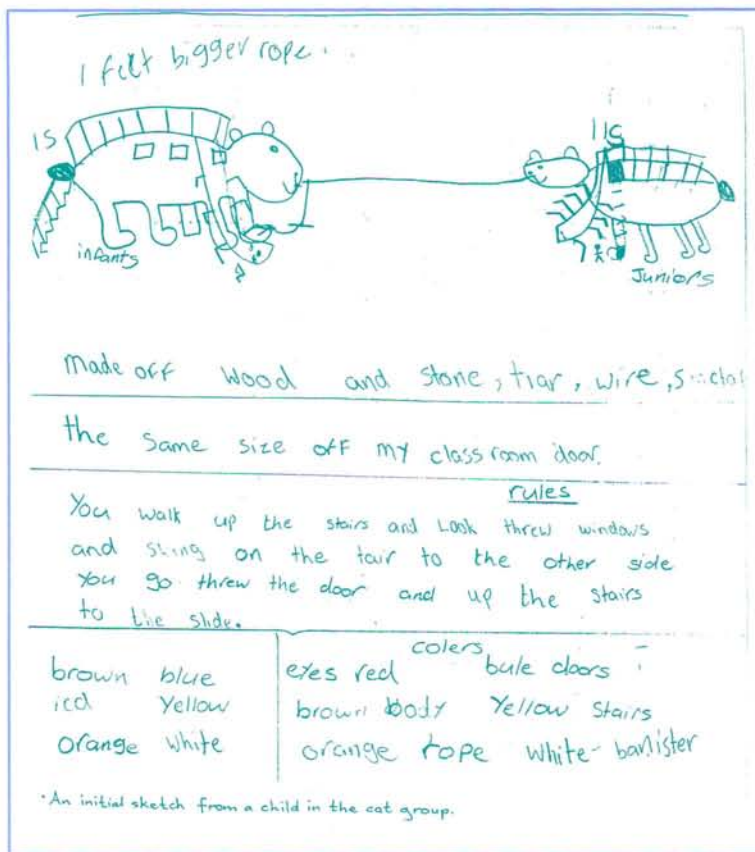 I felt bigger rope..
1S
11S
infants
Juniors
made off wood and stone, tiar, wire,
the same size off my classroom door.
rules
You walk up the stairs and Look threw windows
and sling on the tair to the other side
You go threw the door and up the stairs
to the slide.
colers
brown blue
Yellow
orange white
eyes red bule doors
brown body Yellow Stairs
orange rope white-banister
·An initial sketch from a child in the cat group.